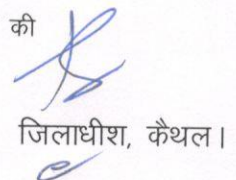 की
जिलाधीश, कैथल।